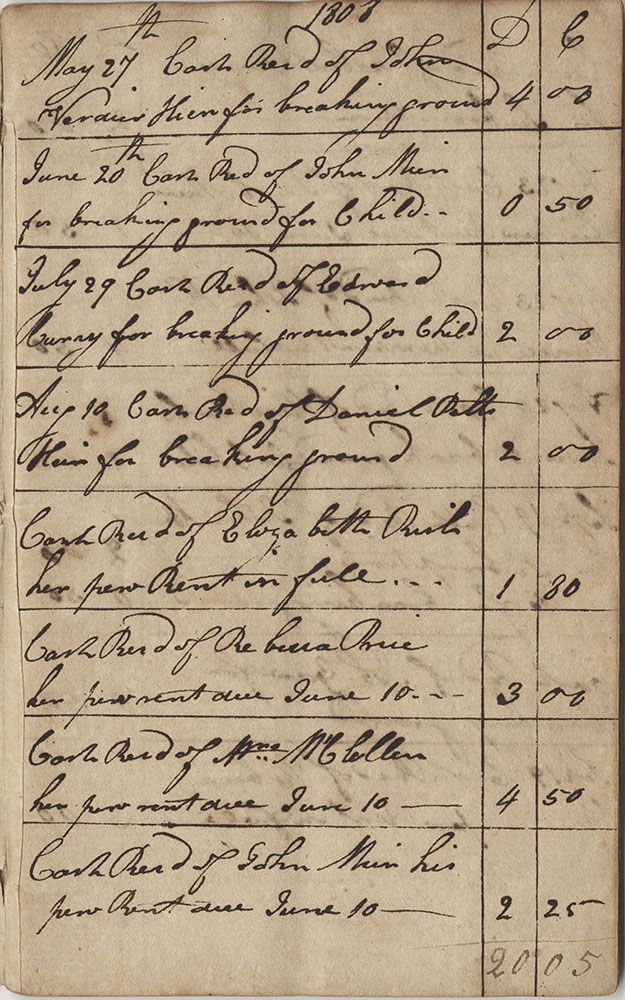 1808
D C
May 27th Cash Recd of John
Verdier Hien for breaking ground 4 00
June 20th Cash Recd of John Mien
for breaking ground for Child.. 0 50
July 29 Cash Recd of Edward
Curry for breaking ground for Child 2 00
Aug 10 Cash Recd of Daniel
for breaking ground 2 00
Cash Recd of Elizabeth Rish
her pew Rent in full ... 1 80
Cash Recd of Rebecca Price
her pew rent due June 10 - - - 3 00
Cash Recd of Mrs McClellen
her pew rent due June 10 — 4 50
Cash Recd of John Mien his
pew Rent due June 10 — 2 25
20 05